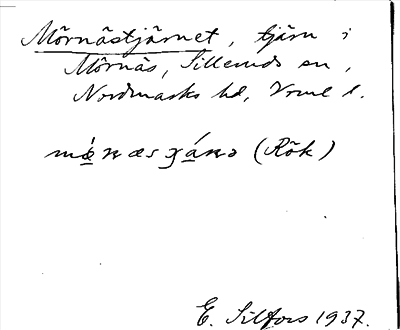 Mörnästjärnet, tjärn i
Mörnäs, Sillerud sn,
Nordmarks hd, Vrml l.
mœ́næsɟánə (Rök)
E. Silfors 1937.